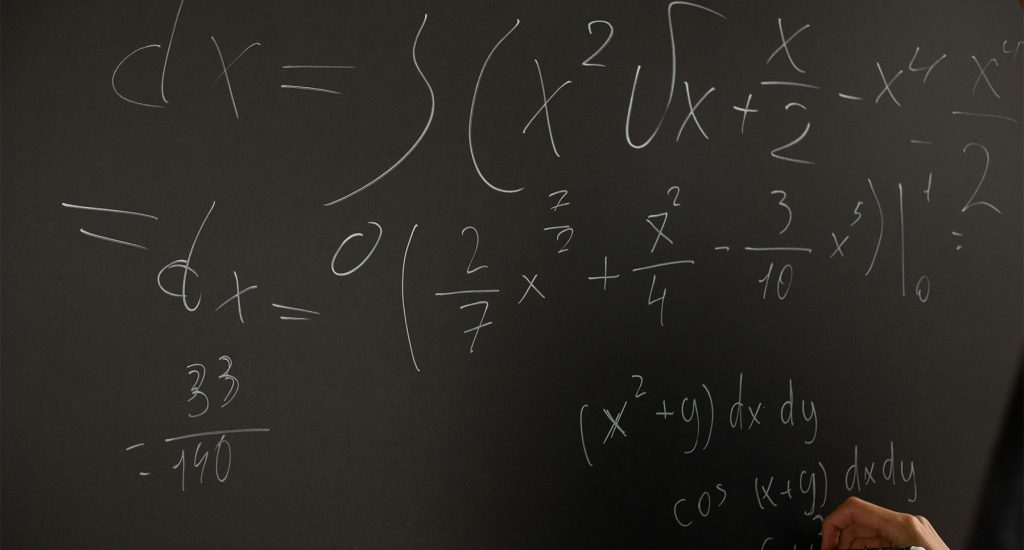 dx = ∫ (x² √x + x/2 − x⁴ − x⁴/2
= dx = 0 (2/7 x^(7/2) + x²/4 − 3/10 x⁵)|₀¹ =
= 33/140
(x² + y) dx dy
cos (x+y) dx dy